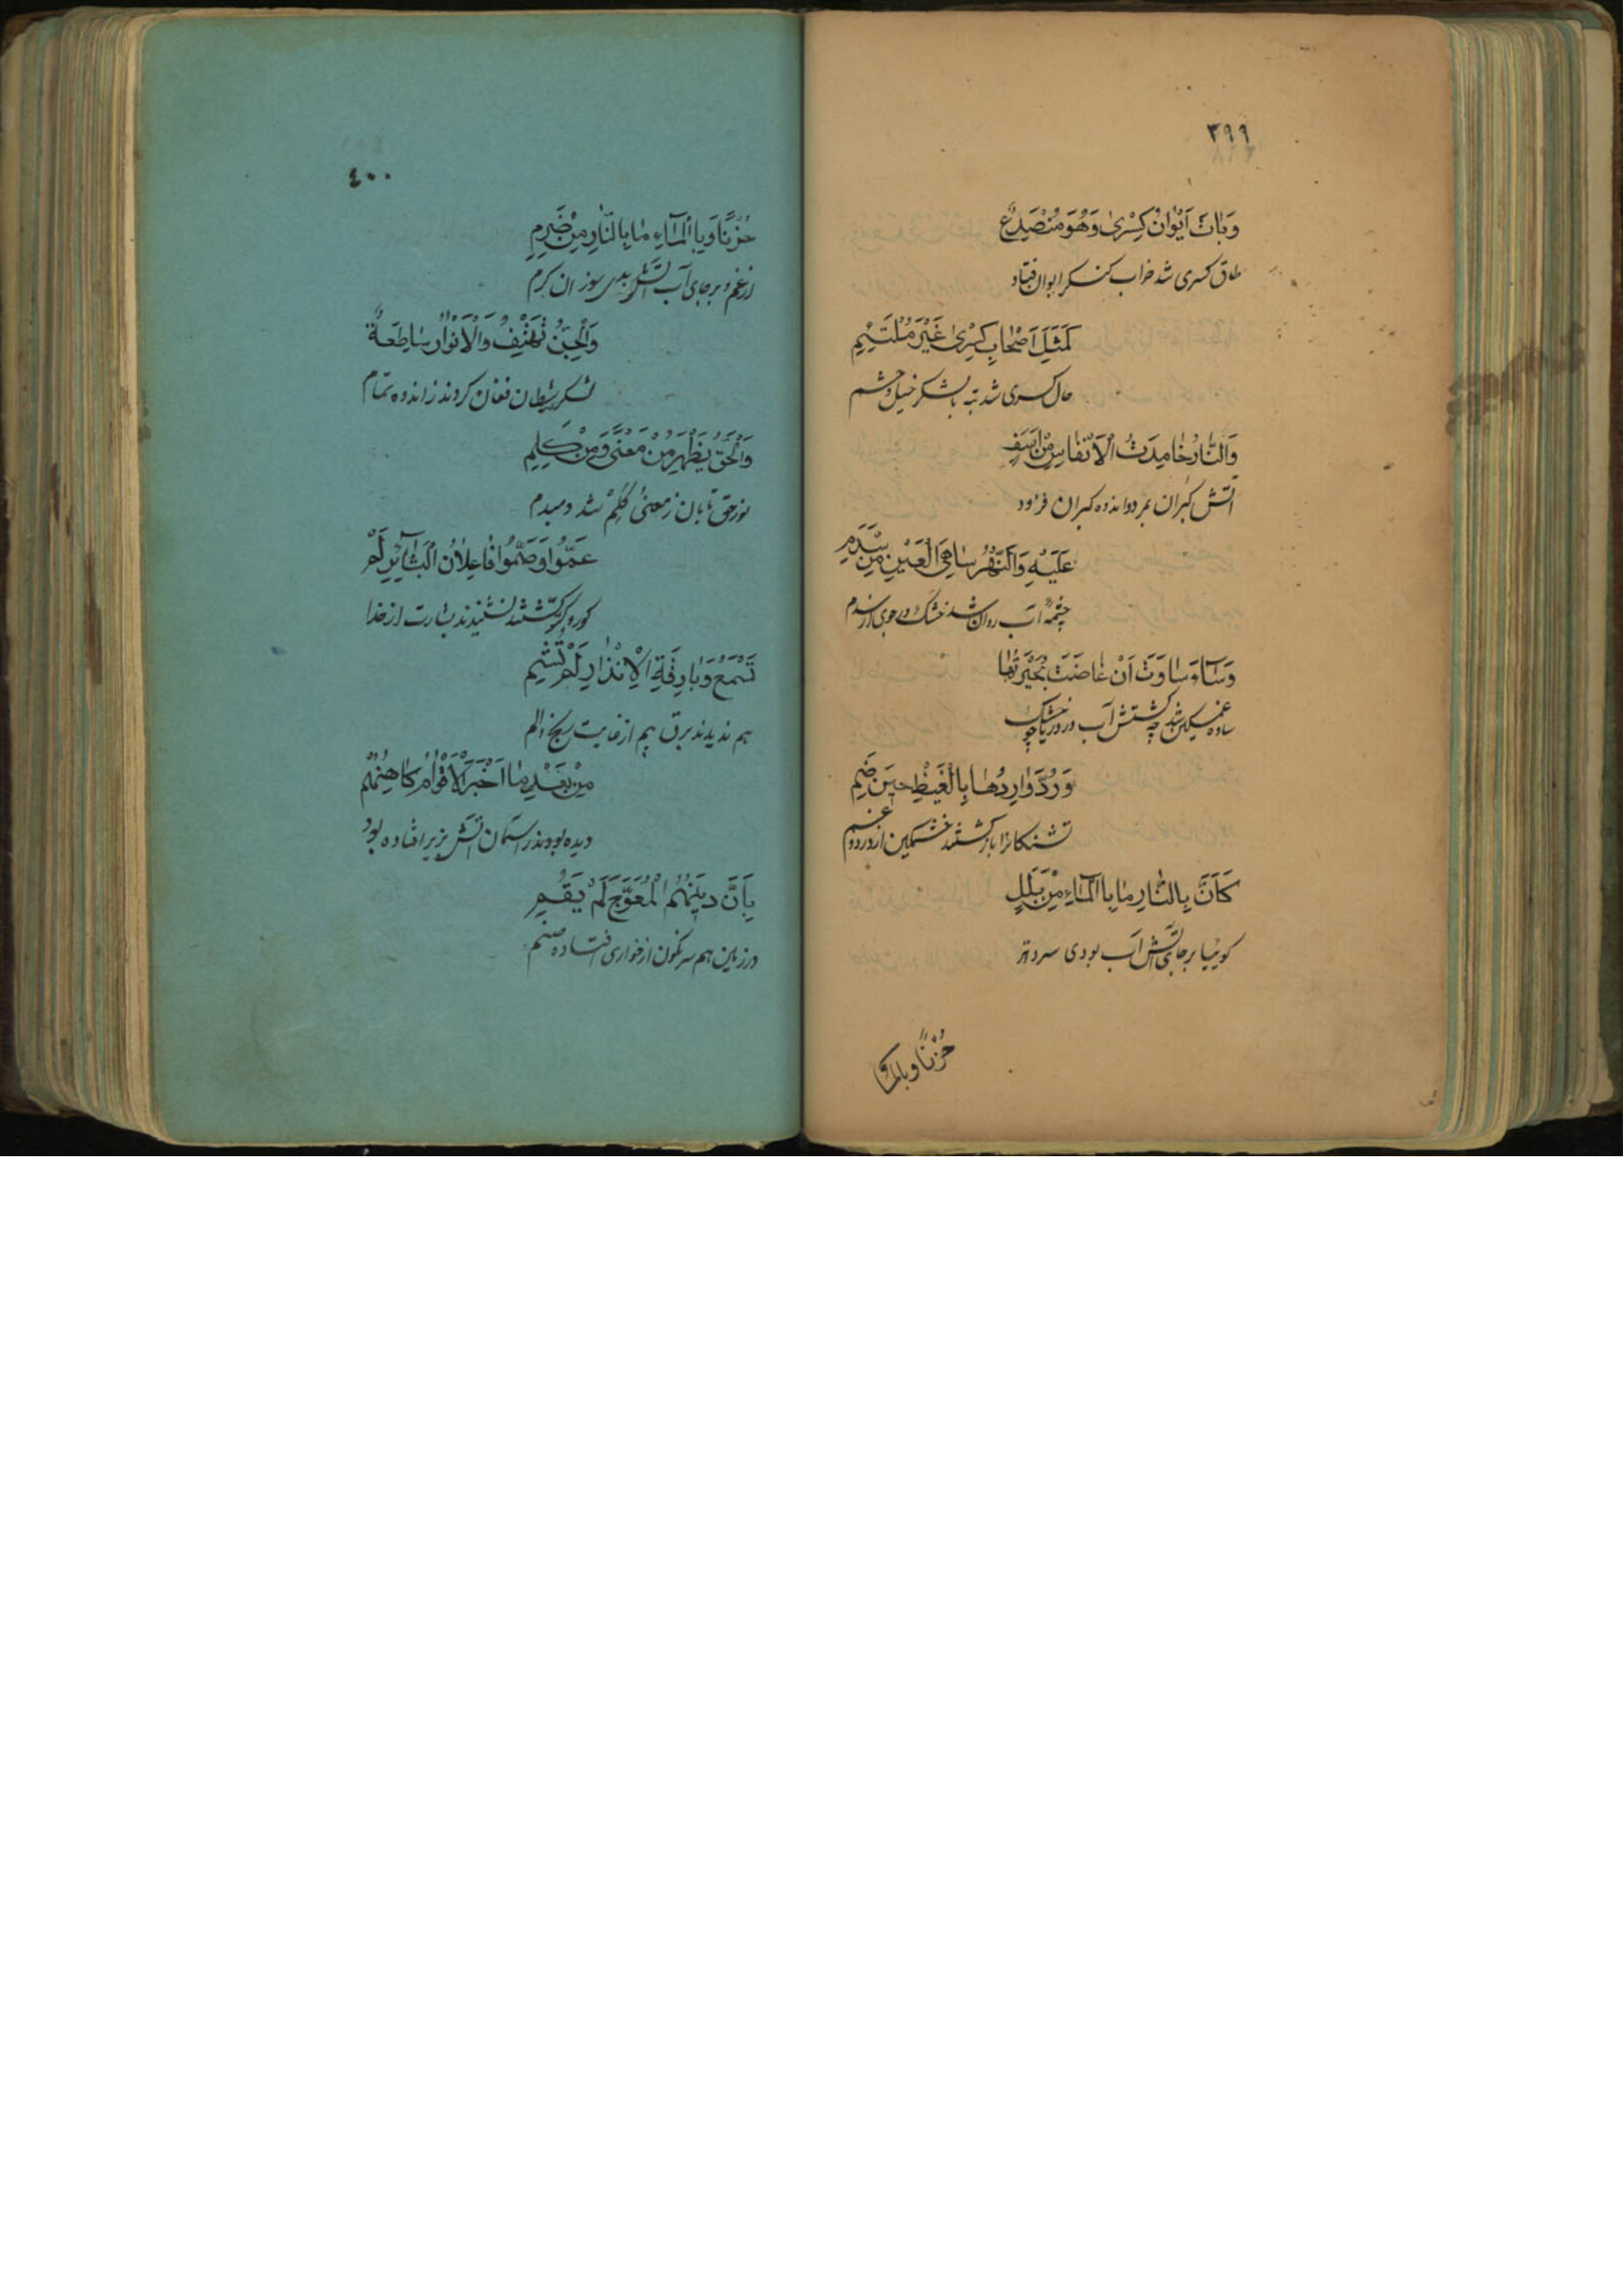 ٣٩٩
وَبَاتَ اَیْوَانُ کِسْریٰ وَهُوَ مُنْصَدِعٌ
طاق کسری شد خراب کنکر ایوان فتاد
کَمَثَلِ اَصْحَابِ کِسْریٰ غَیْرَ مُلْتَئِمِ
حال کسری شد تبه با لشکر خیل و حشم
وَالنَّارُ خَامِدَتُ الْاَنْفَاسِ مِنْ اَسَفٍ
آتش کبران بمرد و اندوه کبران فزود
عَلَیْهِ وَالنَّهْرُ سَاهِی الْعَیْنِ مِنْ سَدَمِ
چشمهٔ آب روان شد خشک در جوی از سدم
وَسَآءَ سَاوَتَ اَنْ غَاضَتْ بُحَیْرَتُهَا
ساوه غمکین شد چه کشتش آب در دریا خشک
وَرُدَّ وَارِدُهَا بِالْغَیْظِ حِیَن ضَمِ
تشنکانرا باز کشتند خشمکین از درد و غم
کَاَنَّ بِالنَّارِ مَا بِاالْمَآءِ مِنْ بَلَلٍ
کوییا بر جای آتش آب بودی سردتر
حُزْنًا و بالمآء
٤٠٠
حُزْنًا وَبِاالْمَآءِ مَا بِالنَّارِ مِنْ ضَرِمِ
از غم و بر جای آب آتش بدی سوزان کرم
وَالْجِنُّ تَهْتِفُ وَالْاَنْوَارُ سَاطِعَةٌ
لشکر شیطان فغان کردند ز اندوه تمام
وَالْحَقُّ یَظْهَرُ مِنْ مَعْنًی وَمِنْ کَلِمِ
نور حق تابان ز معنیٰ کلم شد دمبدم
عَمُّوا وَصَمُّوا فَاعِلَانُ الْبَشَآئِرِ لَمْ
کور و کر کشتند نشنیدند بشارت از خدا
تُسْمَعْ وَبَارِقَةُ الْاِنْذَارِ لَمْ تُشَمِ
هم ندیدند برق بیم از غایت رنج و الم
مِنْ بَعْدِ مَا اَخْبَرَ الْاَقْوَامَ کَاهِنُهُمْ
دیده بودند ز آسمان آتش بزیر افتاده بود
بِاَنَّ دِینَهُمُ الْمُعَوَّجَ لَمْ یَقُمِ
در زمین هم سرنکون از خواری افتاده صنم